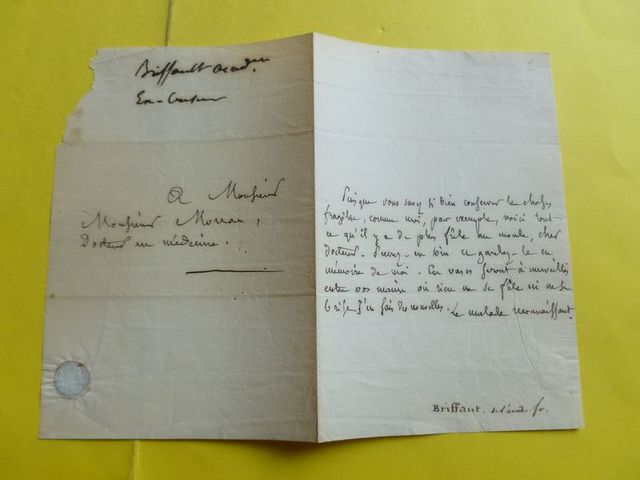 Briffault acad.
Ex-Censeur
A Monsieur
Monsieur Moreau,
Docteur en médecine.
Puisque vous savez si bien conserver les choses
fragiles, comme moi, par exemple, voici tout
ce qu'il y a de plus fêle au monde, cher
docteur. Prenez-en soin et gardez-le en
mémoire de moi. Ces vases seront à merveille
entre vos mains où rien ne se fêle ni ne se
brise. J'en fais des nouvelles. Le malade reconnaissant.
Briffaut. de l'acad. fr.